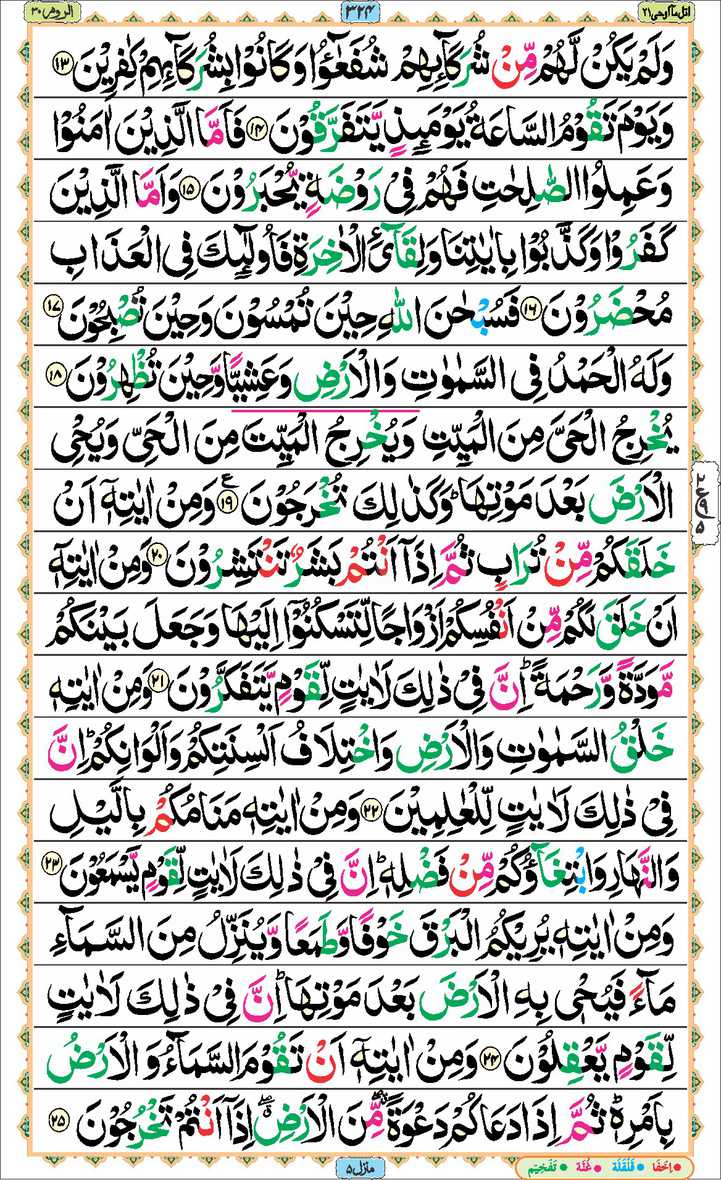 اتل ما اوحی ۲۱ ۳۲۴ الروم ۳۰
وَلَمْ يَكُنْ لَّهُمْ مِّنْ شُرَكَآئِهِمْ شُفَعٰٓؤُا وَكَانُوْا بِشُرَكَآئِهِمْ كٰفِرِيْنَ ۝۱۳
وَيَوْمَ تَقُوْمُ السَّاعَةُ يَوْمَئِذٍ يَّتَفَرَّقُوْنَ ۝۱۴ فَاَمَّا الَّذِيْنَ اٰمَنُوْا
وَعَمِلُوا الصّٰلِحٰتِ فَهُمْ فِيْ رَوْضَةٍ يُّحْبَرُوْنَ ۝۱۵ وَاَمَّا الَّذِيْنَ
كَفَرُوْا وَكَذَّبُوْا بِاٰيٰتِنَا وَلِقَآئِ الْاٰخِرَةِ فَاُولٰٓئِكَ فِي الْعَذَابِ
مُحْضَرُوْنَ ۝۱۶ فَسُبْحٰنَ اللّٰهِ حِيْنَ تُمْسُوْنَ وَحِيْنَ تُصْبِحُوْنَ ۝۱۷
وَلَهُ الْحَمْدُ فِي السَّمٰوٰتِ وَالْاَرْضِ وَعَشِيًّا وَّحِيْنَ تُظْهِرُوْنَ ۝۱۸
يُخْرِجُ الْحَيَّ مِنَ الْمَيِّتِ وَيُخْرِجُ الْمَيِّتَ مِنَ الْحَيِّ وَيُحْيِ
الْاَرْضَ بَعْدَ مَوْتِهَا ؕ وَكَذٰلِكَ تُخْرَجُوْنَ ۝۱۹ع وَمِنْ اٰيٰتِهٖٓ اَنْ
خَلَقَكُمْ مِّنْ تُرَابٍ ثُمَّ اِذَآ اَنْتُمْ بَشَرٌ تَنْتَشِرُوْنَ ۝۲۰ وَمِنْ اٰيٰتِهٖٓ
اَنْ خَلَقَ لَكُمْ مِّنْ اَنْفُسِكُمْ اَزْوَاجًا لِّتَسْكُنُوْٓا اِلَيْهَا وَجَعَلَ بَيْنَكُمْ
مَّوَدَّةً وَّرَحْمَةً ؕ اِنَّ فِيْ ذٰلِكَ لَاٰيٰتٍ لِّقَوْمٍ يَّتَفَكَّرُوْنَ ۝۲۱ وَمِنْ اٰيٰتِهٖ
خَلْقُ السَّمٰوٰتِ وَالْاَرْضِ وَاخْتِلَافُ اَلْسِنَتِكُمْ وَاَلْوَانِكُمْ ؕ اِنَّ
فِيْ ذٰلِكَ لَاٰيٰتٍ لِّلْعٰلِمِيْنَ ۝۲۲ وَمِنْ اٰيٰتِهٖ مَنَامُكُمْ بِالَّيْلِ
وَالنَّهَارِ وَابْتِغَآؤُكُمْ مِّنْ فَضْلِهٖ ؕ اِنَّ فِيْ ذٰلِكَ لَاٰيٰتٍ لِّقَوْمٍ يَّسْمَعُوْنَ ۝۲۳
وَمِنْ اٰيٰتِهٖ يُرِيْكُمُ الْبَرْقَ خَوْفًا وَّطَمَعًا وَّيُنَزِّلُ مِنَ السَّمَآءِ
مَآءً فَيُحْيٖ بِهِ الْاَرْضَ بَعْدَ مَوْتِهَا ؕ اِنَّ فِيْ ذٰلِكَ لَاٰيٰتٍ
لِّقَوْمٍ يَّعْقِلُوْنَ ۝۲۴ وَمِنْ اٰيٰتِهٖٓ اَنْ تَقُوْمَ السَّمَآءُ وَالْاَرْضُ
بِاَمْرِهٖ ؕ ثُمَّ اِذَا دَعَاكُمْ دَعْوَةً ۖ مِّنَ الْاَرْضِ ۖ اِذَآ اَنْتُمْ تَخْرُجُوْنَ ۝۲۵
منزل ۵
اِخفَا قَلْقَلَة غُنَّة تَفْخِيْم